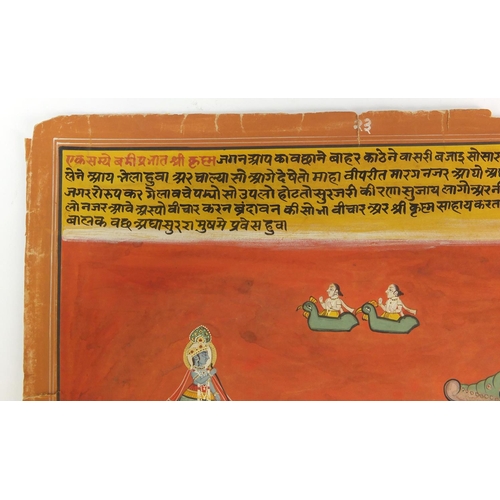 २३
एक समे बडी प्रभात श्री कृष्ण जगन आय का वछाने बाहर काठेने वासरी बजाइ सो सारा
लेने आय नेला हुवा अर चाल्या सो आगे देषे तो माहा वीपरीत मारग नजर आयो
जगर रो रुप कर गेलाव चे पस्यो सो उपलो होट तो सुरज री की रणा सु जाय लागो अर
लो नजर आवे अस्यो वीचार करन ब्रंदावन की सो वीचार अर श्री कृष्ण साहाय करत
बालक वछ अघासुर रा मुष मे प्रवेस हुवा।